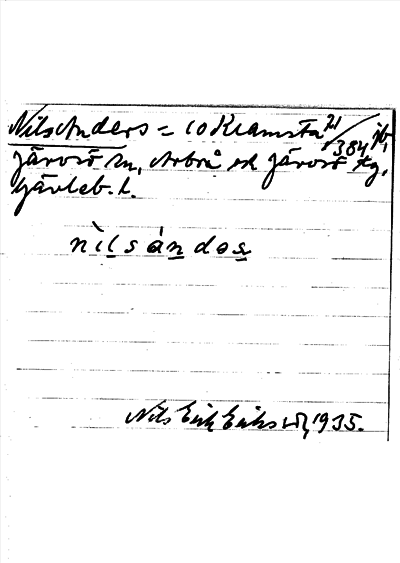 NilsAnders = 10 Kramsta 21/384 jb,
Järvsö sn, Arbrå ok Järvsö tg,
Gävleb. l.
nìlsándos
Nils Erik Erikss 1935.